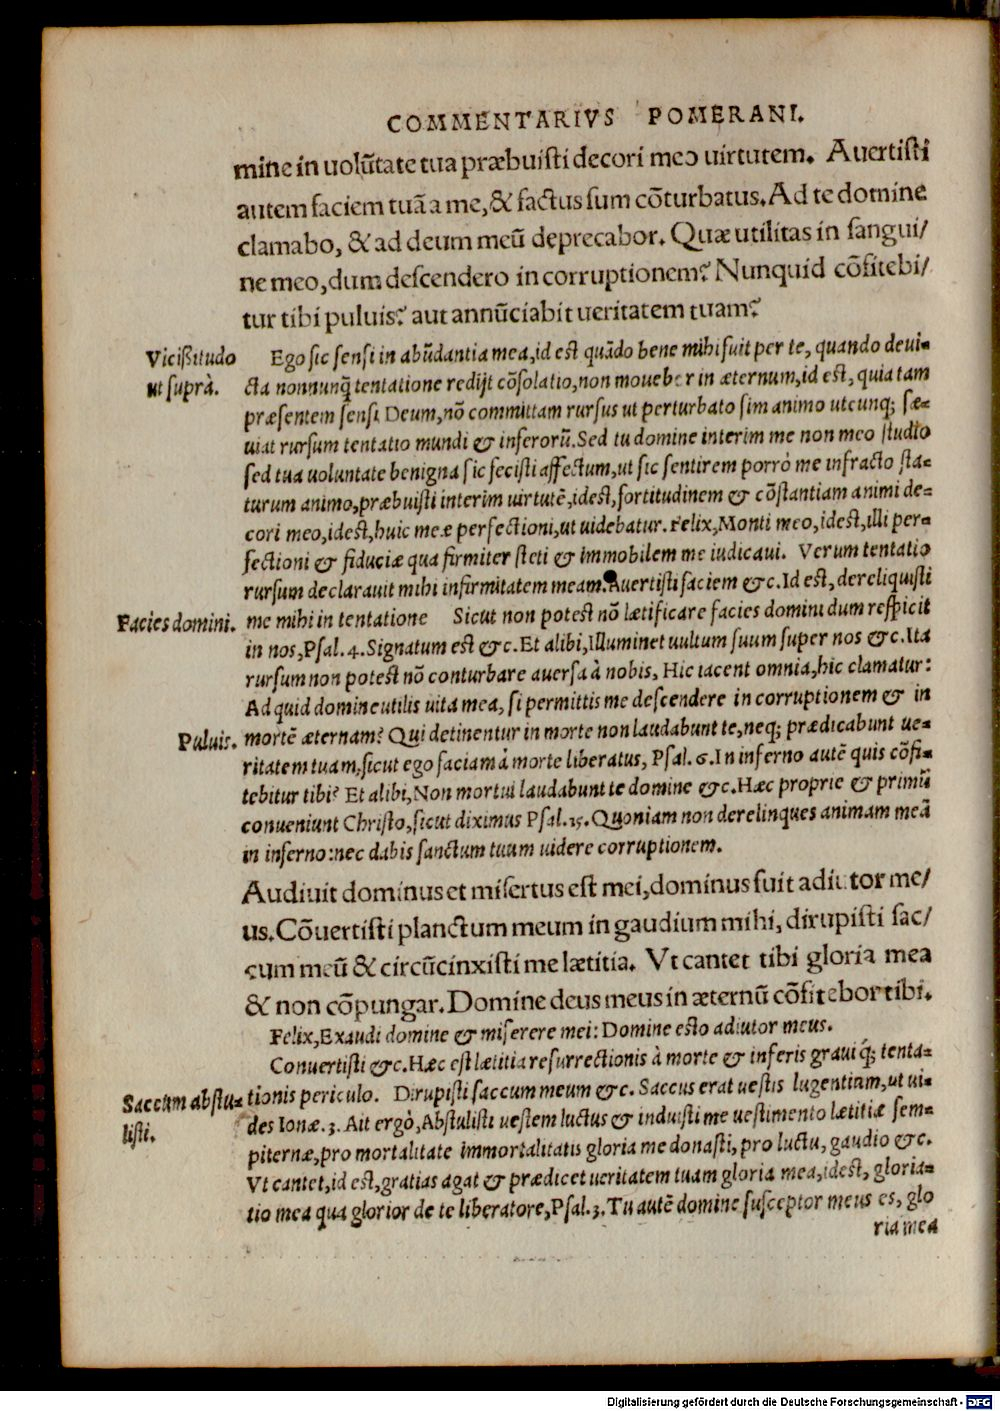 COMMENTARIVS POMERANI.
mine in uolũtate tua præbuisti decori meo uirtutem. Auertisti
autem faciem tuã a me, & factus sum cõturbatus. Ad te domine
clamabo, & ad deum meũ deprecabor. Quæ utilitas in sangui/
ne meo, dum descendero in corruptionem? Nunquid cõfitebi/
tur tibi puluis? aut annũciabit ueritatem tuam?
Vicißitudo
ut suprà.
Ego sic sensi in abũdantia mea, id est quãdo bene mihi fuit per te, quando deui=
cta nonnunq̃ tentatione redijt cõsolatio, non mouebor in æternum, id est, quia tam
præsentem sensi Deum, nõ committam rursus ut perturbato sim animo utcunq; sæ=
uiat rursum tentatio mundi & inferorũ. Sed tu domine interim me non meo studio
sed tua uoluntate benigna sic fecisti affectum, ut sic sentirem porrò me infracto sta=
turum animo, præbuisti interim uirtutẽ, idest, fortitudinem & cõstantiam animi de=
cori meo, idest, huic meæ perfectioni, ut uidebatur. Felix, Monti meo, idest, illi per=
fectioni & fiduciæ qua firmiter steti & immobilem me iudicaui. Verum tentatio
rursum declarauit mihi infirmitatem meam. Auertisti faciem &c. Id est, dereliquisti
Facies domini.
me mihi in tentatione Sicut non potest nõ lætificare facies domini dum respicit
in nos, Psal. 4. Signatum est &c. Et alibi, Illuminet uultum suum super nos &c. Ita
rursum non potest nõ conturbare auersa à nobis, Hic iacent omnia, hic clamatur:
Ad quid domine utilis uita mea, si permittis me descendere in corruptionem & in
Puluis.
mortẽ æternam? Qui detinentur in morte non laudabunt te, neq; prædicabunt ue=
ritatem tuam, sicut ego faciam à morte liberatus, Psal. 6. In inferno autẽ quis cõfi=
tebitur tibi? Et alibi, Non mortui laudabunt te domine &c. Hæc proprie & primũ
conueniunt Christo, sicut diximus Psal. 15. Quoniam non derelinques animam meã
in inferno: nec dabis sanctum tuum uidere corruptionem.
Audiuit dominus et misertus est mei, dominus fuit adiutor me/
us. Cõuertisti planctum meum in gaudium mihi, dirupisti sac/
cum meũ & circũcinxisti me lætitia. Vt cantet tibi gloria mea
& non cõpungar. Domine deus meus in æternũ cõfitebor tibi.
Felix, Exaudi domine & miserere mei: Domine esto adiutor meus.
Conuertisti &c. Hæc est lætitia resurrectionis à morte & inferis grauiq́; tenta=
Saccum abstu=
listi.
tionis periculo. Dirupisti saccum meum &c. Saccus erat uestis lugentium, ut ui=
des Ionæ. 3. Ait ergò, Abstulisti uestem luctus & induisti me uestimento lætitiæ sem=
piternæ, pro mortalitate immortalitatis gloria me donasti, pro luctu, gaudio &c.
Vt cantet, id est, gratias agat & prædicet ueritatem tuam gloria mea, idest, gloria=
tio mea qua glorior de te liberatore, Psal. 3. Tu autẽ domine susceptor meus es, glo
ria mea
Digitalisierung gefördert durch die Deutsche Forschungsgemeinschaft - DFG